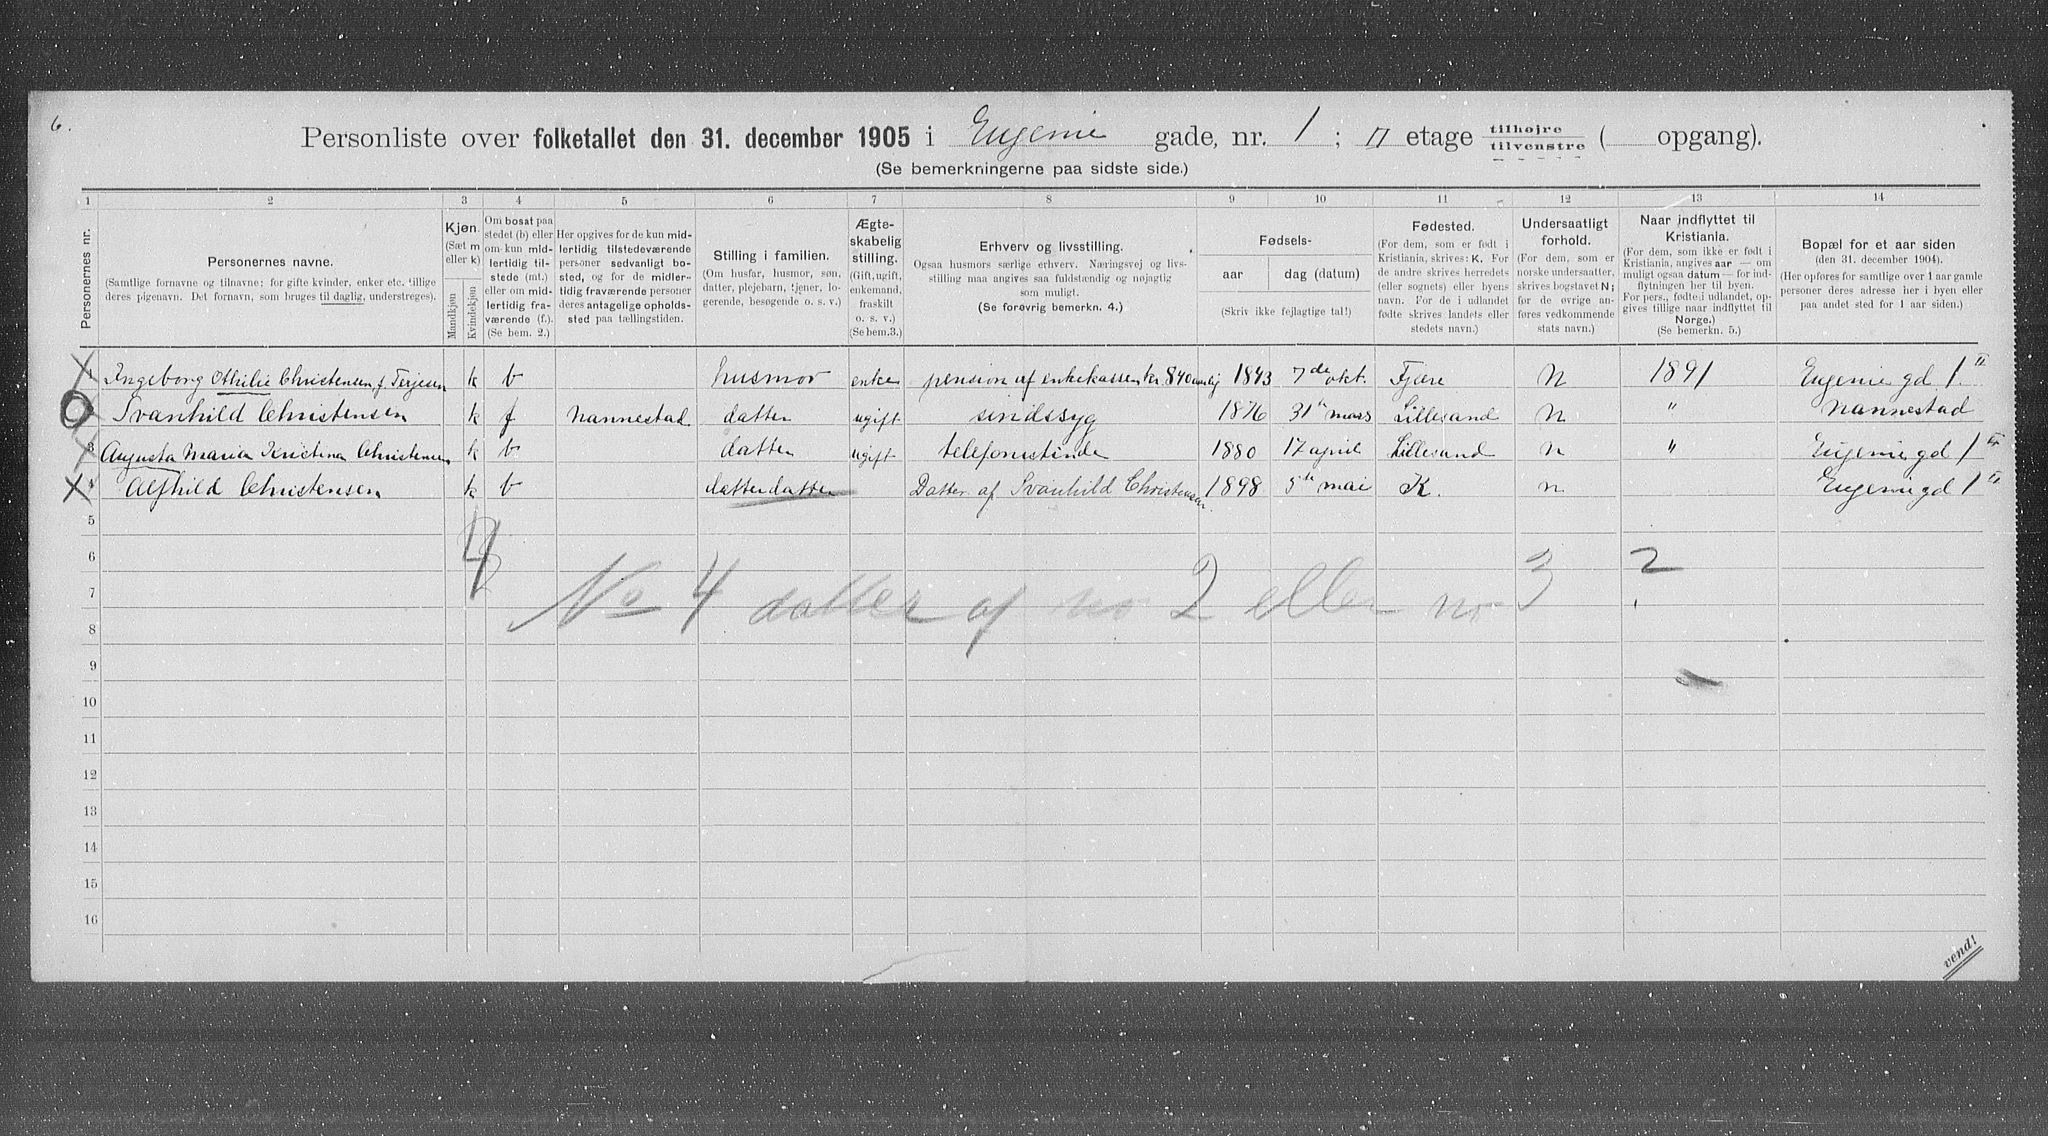 6.
Personliste over folketallet den 31. december 1905 i Eugenie gade, nr. 1 ; II etage tilhøjre tilvenstre ( opgang).
(Se bemerkningerne paa sidste side.)
1 2 3 4 5 6 7 8 9 10 11 12 13 14
Personernes nr.
Personernes navne.
(Samtlige fornavne og tilnavne; for gifte kvinder, enker etc. tillige
deres pigenavn. Det fornavn, som bruges til daglig, understreges).
Kjøn.
(Sæt m
eller k)
Mandkjøn
Kvindekjøn
Om bosat paa
stedet (b) eller
om kun mid-
lertidig til-
stede (mt.)
eller om mid-
lertidig fra-
værende (f.).
(Se bem. 2.)
Her opgives for de kun mid-
lertidig tilstedeværende
personer sedvanligt bo-
sted, og for de midler-
tidig fraværende personer
deres antagelige opholds-
sted paa tællingstiden.
Stilling i familien.
(Om husfar, husmor, søn,
datter, plejebarn, tjener, lo-
gerende, besøgende o. s. v.)
Ægte-
skabelig
stilling.
(Gift, ugift,
enkemand,
fraskilt
o. s. v.)
(Se bem. 3.)
Erhverv og livsstilling.
Ogsaa husmors særlige erhverv. Næringsvej og livs-
stilling maa angives saa fuldstændig og nøjagtig
som muligt.
(Se forøvrig bemerkn. 4.)
Fødsels-
aar dag (datum)
(Skriv ikke fejlagtige tal!)
Fødested.
(For dem, som er født i
Kristiania, skrives: K. For
de andre skrives herredets
(eller sognets) eller byens
navn. For de i udlandet
fødte skrives landets eller
stedets navn.)
Undersaatligt
forhold.
(For dem, som er
norske undersaatter,
skrives bogstavet N;
for de øvrige an-
føres vedkommende
stats navn.)
Naar indflyttet til
Kristiania.
(For dem, som ikke er født i
Kristiania, angives aar — om
muligt ogsaa datum — for ind-
flytningen her til byen.
For pers., fødte i udlandet, op-
gives tillige naar indflyttet til
Norge.)
(Se bemerkn. 5.)
Bopæl for et aar siden
(den 31. december 1904).
(Her opføres for samtlige over 1 aar gamle
personer deres adresse her i byen eller
paa andet sted for 1 aar siden.)
1 Ingeborg Othilie Christensen f. Terjesen k b husmor enke pension af enkekassen kr. 840 aarlig 1843 7de okt. Fjære N 1891 Eugenie gd 1 II
Svanhild Christensen k f Nannestad datter ugift sindssyg 1876 31te mars Lillesand N " Nannestad
3 Augusta Maria Kristina Christensen k b datter ugift telefonistinde 1880 17 april Lillesand N " Eugenie gd 1 II
4 Alfhild Christensen k b datterdatter Datter af Svanhild Christensen 1898 5te mai K. N Eugenie gd 1 II
5
6 4 2
No 4 datter af no 2 eller no 3
7
8
9
10
11
12
13
14
15
16
vend!